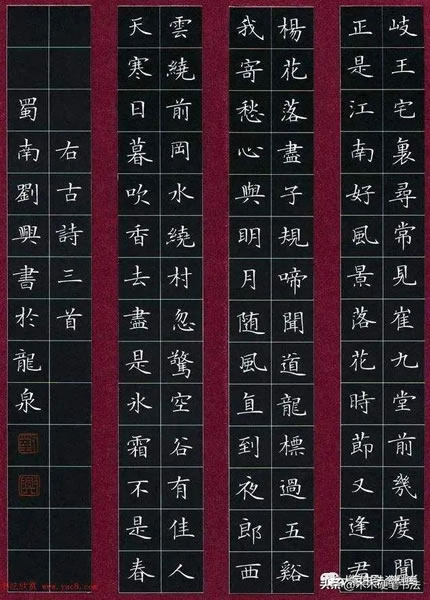 岐王宅裏尋常見崔九堂前幾度聞
正是江南好風景落花時節又逢君
楊花落盡子規啼聞道龍標過五谿
我寄愁心與明月随風直到夜郎西
雲繞前岡水繞村忽驚空谷有佳人
天寒日暮吹香去盡是氷霜不是春
右古詩三首
蜀南劉興書於龍泉